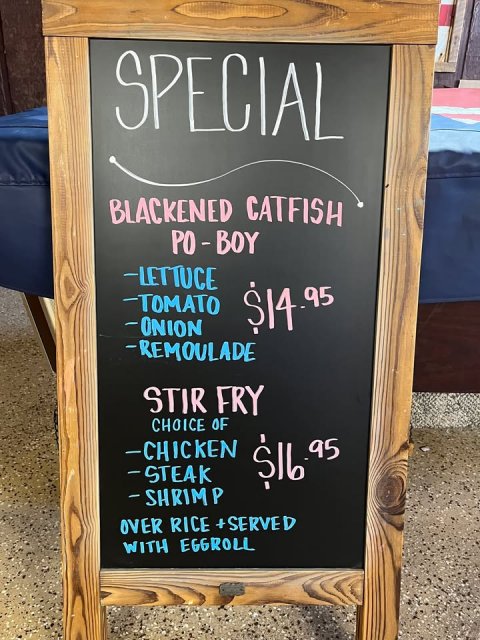 SPECIAL
BLACKENED CATFISH
PO-BOY
-LETTUCE
-TOMATO
-ONION
-REMOULADE
$14.95
STIR FRY
CHOICE OF
-CHICKEN
-STEAK
-SHRIMP
$16.95
OVER RICE + SERVED
WITH EGGROLL